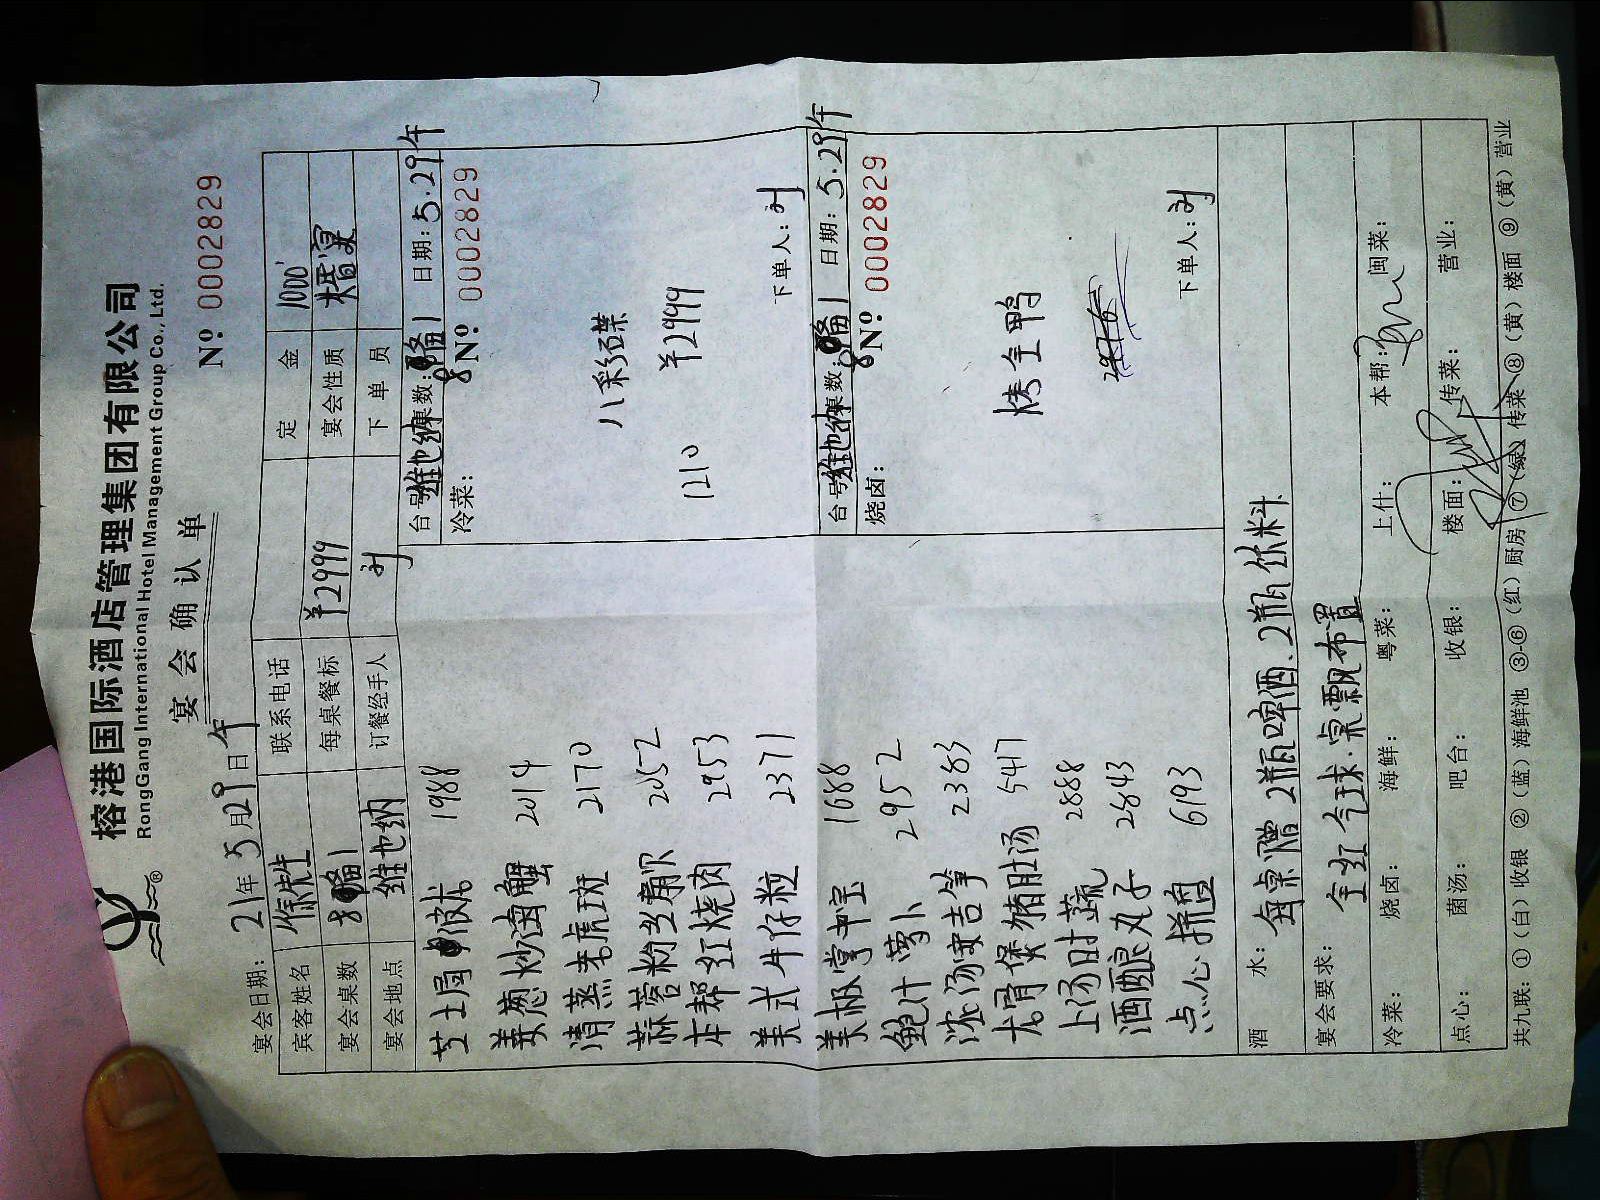 榕港国际酒店管理集团有限公司
RongGang International Hotel Management Group Co., Ltd.
宴会确认单
№ 0002829
宴会日期: 21年5月29日午
宾客姓名 徐先生 联系电话 定金 1000
宴会桌数 8备1 每桌餐标 ¥2999 宴会性质 婚宴
宴会地点 维也纳 订餐经手人 下单员
台号: 维也纳 桌数: 8备1 日期: 5.29午
冷菜: № 0002829
八彩碟
1210 ¥2999
下单人:
芝士焗 1988
姜葱炒 蟹 2014
清蒸老虎斑 2170
蒜蓉粉丝扇贝 2052
本帮红烧肉 2953
美式牛仔粒 2371
台号: 维也纳 桌数: 8备1 日期: 5.29午
烧卤: № 0002829
烤全鸭
下单人:
美极掌中宝 1688
鲍汁萝卜 2952
浓汤安吉笋 2383
龙骨煲猪肚汤 5417
上汤时蔬 2888
酒酿丸子 2843
点心拼盘 6193
酒水: 每桌赠2瓶啤酒.2瓶饮料
宴会要求: 全红气球.桌飘布置
冷菜: 烧卤: 海鲜: 粤菜: 上什: 本帮: 闽菜:
点心: 菌汤: 吧台: 收银: 楼面: 传菜: 营业:
共九联: ①(白)收银 ②(蓝)海鲜池 ③-⑥(红)厨房 ⑦(绿)传菜 ⑧(黄)楼面 ⑨(黄)营业